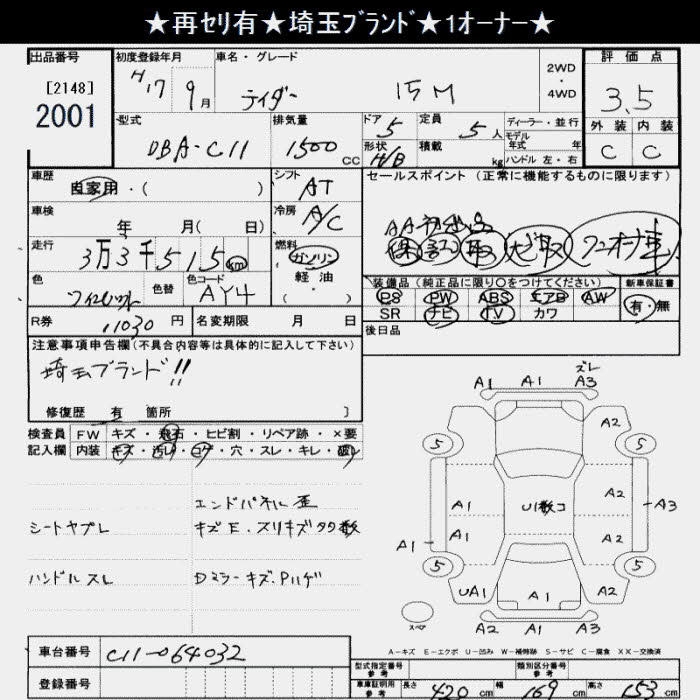 ★再セリ有★埼玉ﾌﾞﾗﾝﾄﾞ★1オーナー★
出品番号 初度登録年月 車名・グレード 2WD ・ 4WD 評価点
[2148] 2001 H17 9月 ティダー 15M 3.5
型式 排気量 ドア 定員 ディーラー・並行 外装 内装
DBA-C11 1500cc 5 5人 モデル年式 年式 C C
形状 H/B 積載 kg ハンドル 左・右
車歴 自家用・( ) シフト AT セールスポイント(正常に機能するものに限ります)
車検 年 月( 日) 冷房 A/C
走行 3万3千515km 燃料 ガソリン 軽油 ・( )
保 記 取
色 色替 色コード AY4
装備品(純正品に限り○をつけてください) 新車保証書
PS PW ABS エアB AW 有・無
SR ナビ TV カワ
R券 11030円 名変期限 月 日 後日品
注意事項申告欄(不具合内容等は具体的に記入して下さい)
埼玉ブランド!!
修復歴 有 箇所 ]
検査員 FW キズ・飛石・ヒビ割・リペア跡・×要
記入欄 内装 キズ・汚レ・コゲ・穴・スレ・キレ・破レ
エンドパネル歪
シートヤブレ キズE.スリキズ多数
ハンドルスレ Dミラーキズ.Pハゲ
ズレ
A1 A1 A3
A2
5 5
A1 A2 A3
U1数コ
A1 A1 A2
5 5
UA1 A1 A2
スペア A2 A1 A3
A-キズ E-エクボ U-凹み W-補修跡 S-サビ C-腐食 XX-交換済
車台番号 C11-064032
型式指定番号 参考 類別区分番号 参考
登録番号 車庫証明用 参考 長さ 420cm 幅 169cm 高さ 153cm